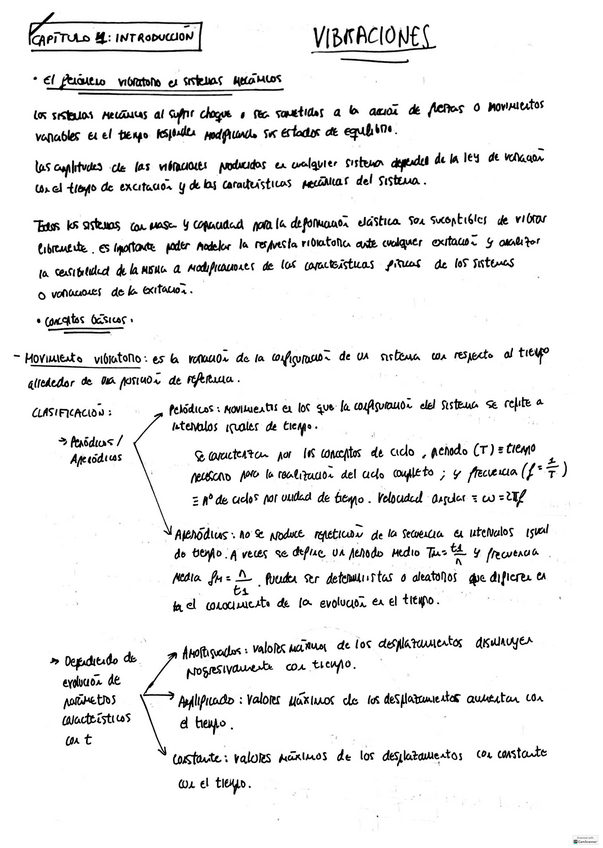 CAPÍTULO 1: INTRODUCCIÓN
VIBRACIONES
• El fenómeno vibratorio en sistemas mecánicos
Los sistemas mecánicos al sufrir choque o sea sometidos a la acción de fuerzas o movimientos
variables en el tiempo responden modificando sus estados de equilibrio.
Las amplitudes de las vibraciones producidas en cualquier sistema dependen de la ley de variación
con el tiempo de excitación y de las características mecánicas del sistema.
Todos los sistemas con masa y capacidad para la deformación elástica son suceptibles de vibrar
libremente. es importante poder modelar la respuesta vibratoria ante cualquer exitación y analizar
la sensibilidad de la misma a modificaciones de las características físicas de los sistemas
o variaciones de la exitación.
• Conceptos básicos.
- Movimiento vibratorio: es la variación de la configuración de un sistema con respecto al tiempo
alrededor de una posición de referencia.
CLASIFICACIÓN:
→ Periódicos/
Aperiódicos
Periódicos: movimientos en los que la configuración del sistema se repite a
intervalos iguales de tiempo.
Se caracterizan por los conceptos de ciclo, periodo (T) ≡ tiempo
necesario para la realización del ciclo completo; y frecuencia (f = 1/T)
≡ nº de ciclos por unidad de tiempo. Velocidad angular ≡ ω = 2πf
Aperiódicos: no se produce repetición de la secuencia en intervalos igual
de tiempo. A veces se define un periodo medio Tm = t1/n y frecuencia
media fm = n/t1. Pueden ser deterministas o aleatorios que difieren en
el conocimiento de la evolución en el tiempo.
→ Dependiendo de
evolución de
parámetros
característicos
con t
Amortiguados: valores máximos de los desplazamientos disminuyen
progresivamente con tiempo.
Amplificado: valores máximos de los desplazamientos aumentan con
el tiempo.
Constante: valores máximos de los desplazamientos con constante
con el tiempo.
CamScanner